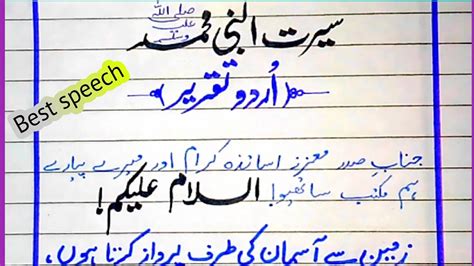 سیرت النبی محمد ﷺ
Best speech
(اُردو تقریر)
جنابِ صدر معزز اساتذہ کرام اور میرے پیارے
ہم مکتب ساتھیو! السلام علیکم!
زمین سے آسمان کی طرف پرواز کرتا ہوں،